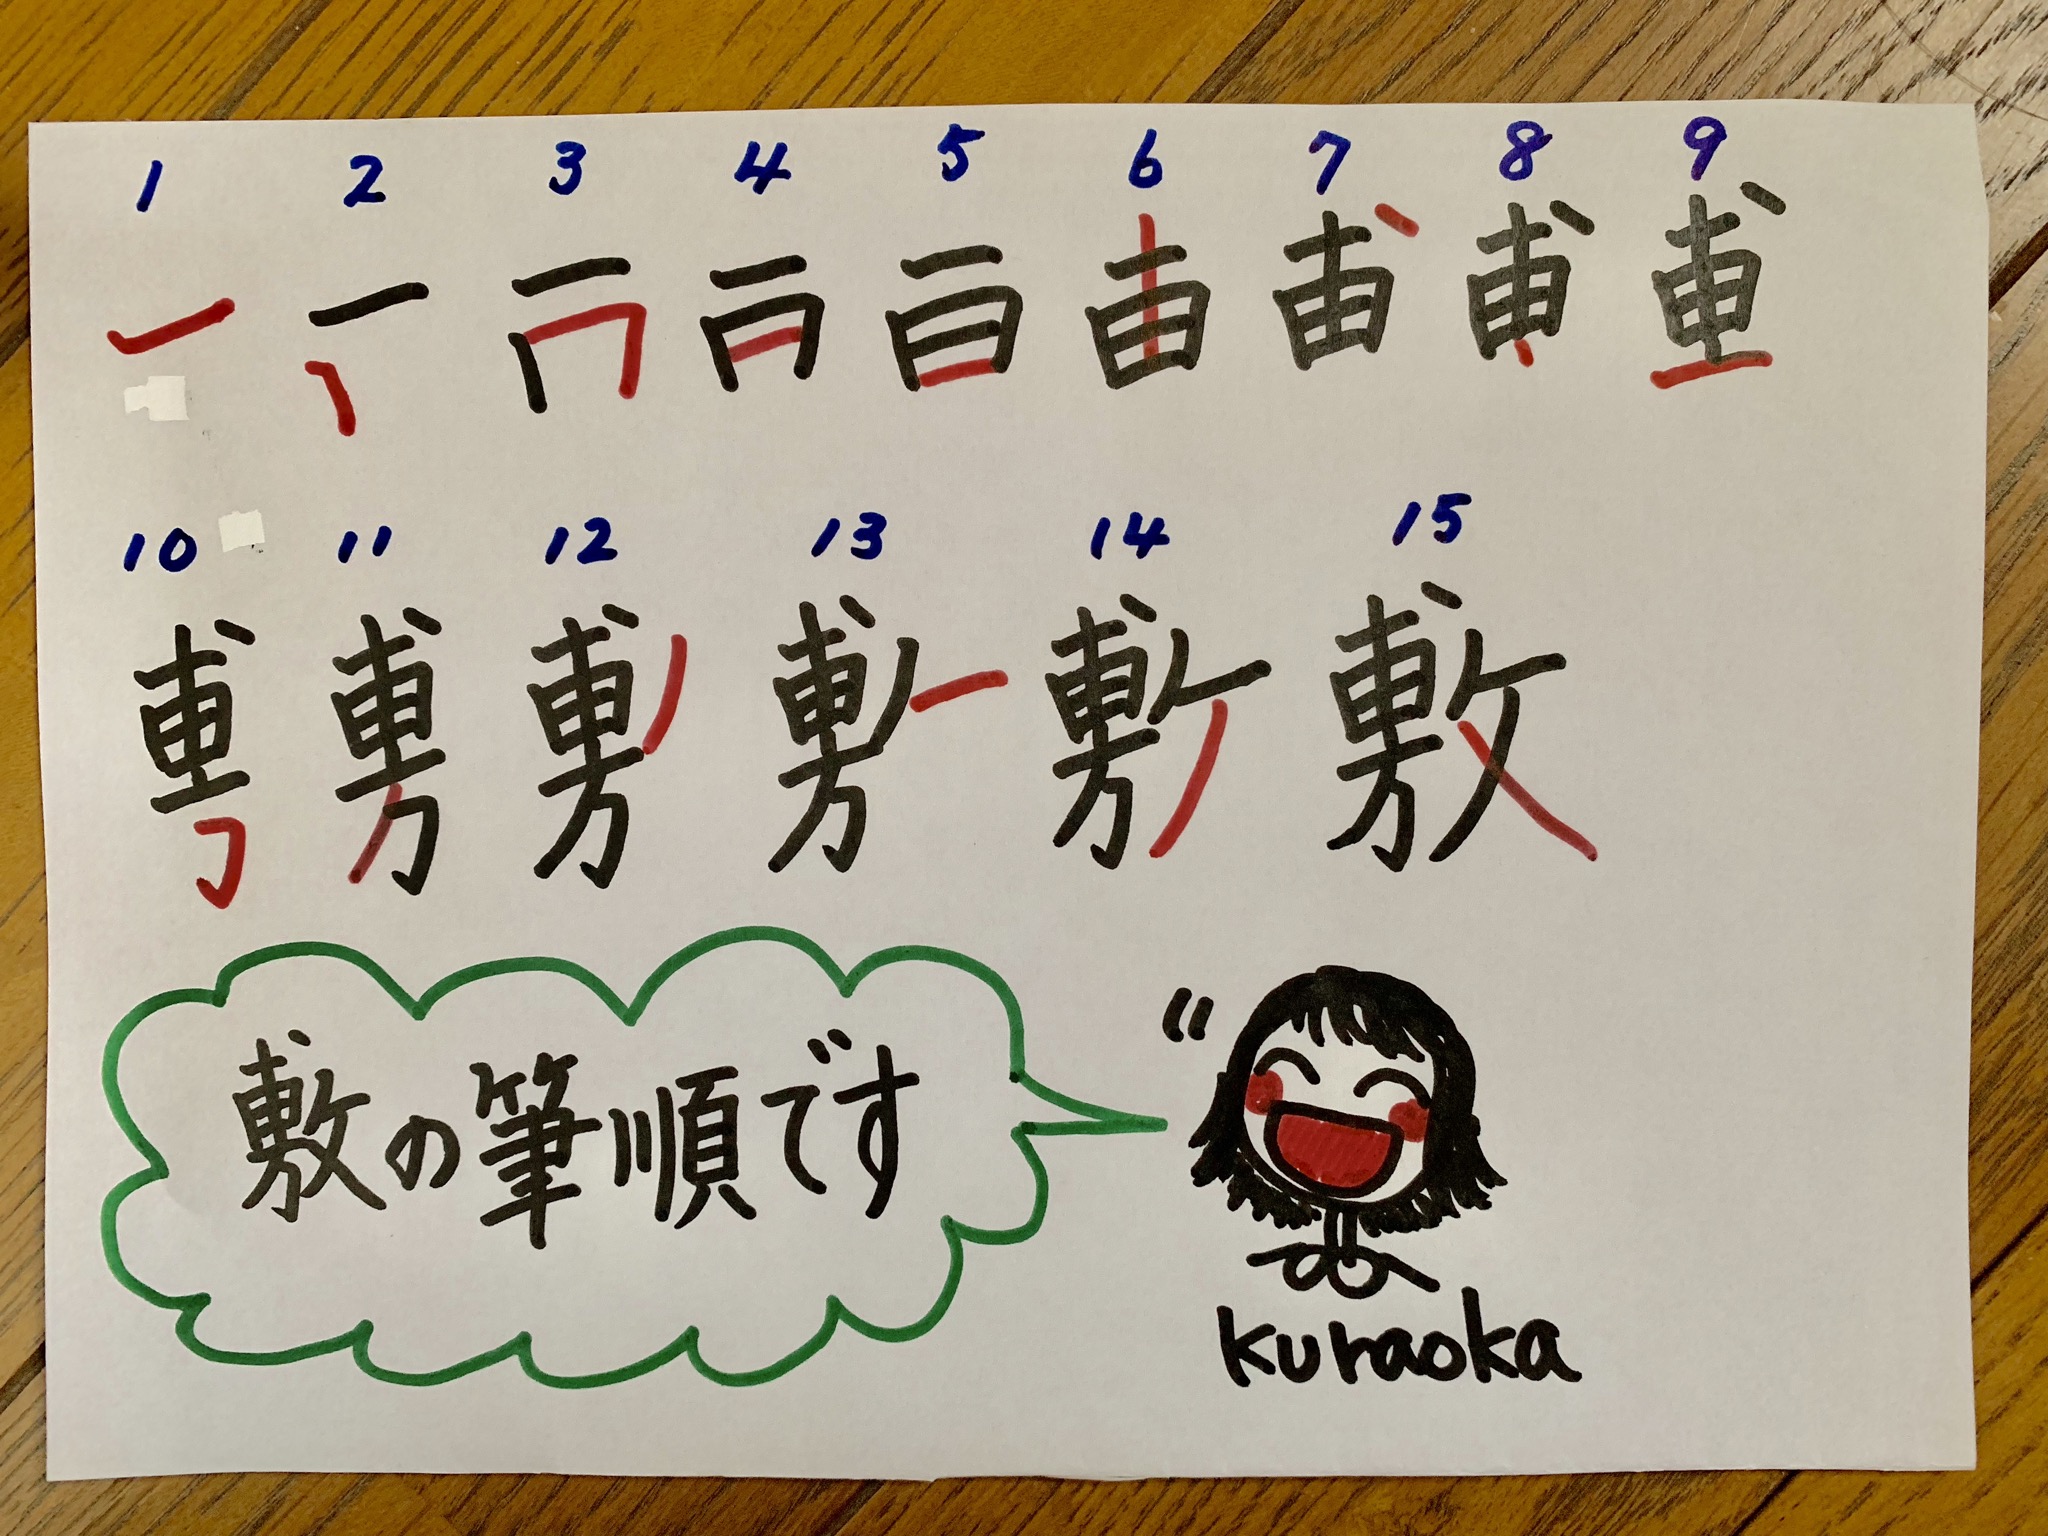 1 2 3 4 5 6 7 8 9
10 11 12 13 14 15
敷
敷の筆順です
kuraoka